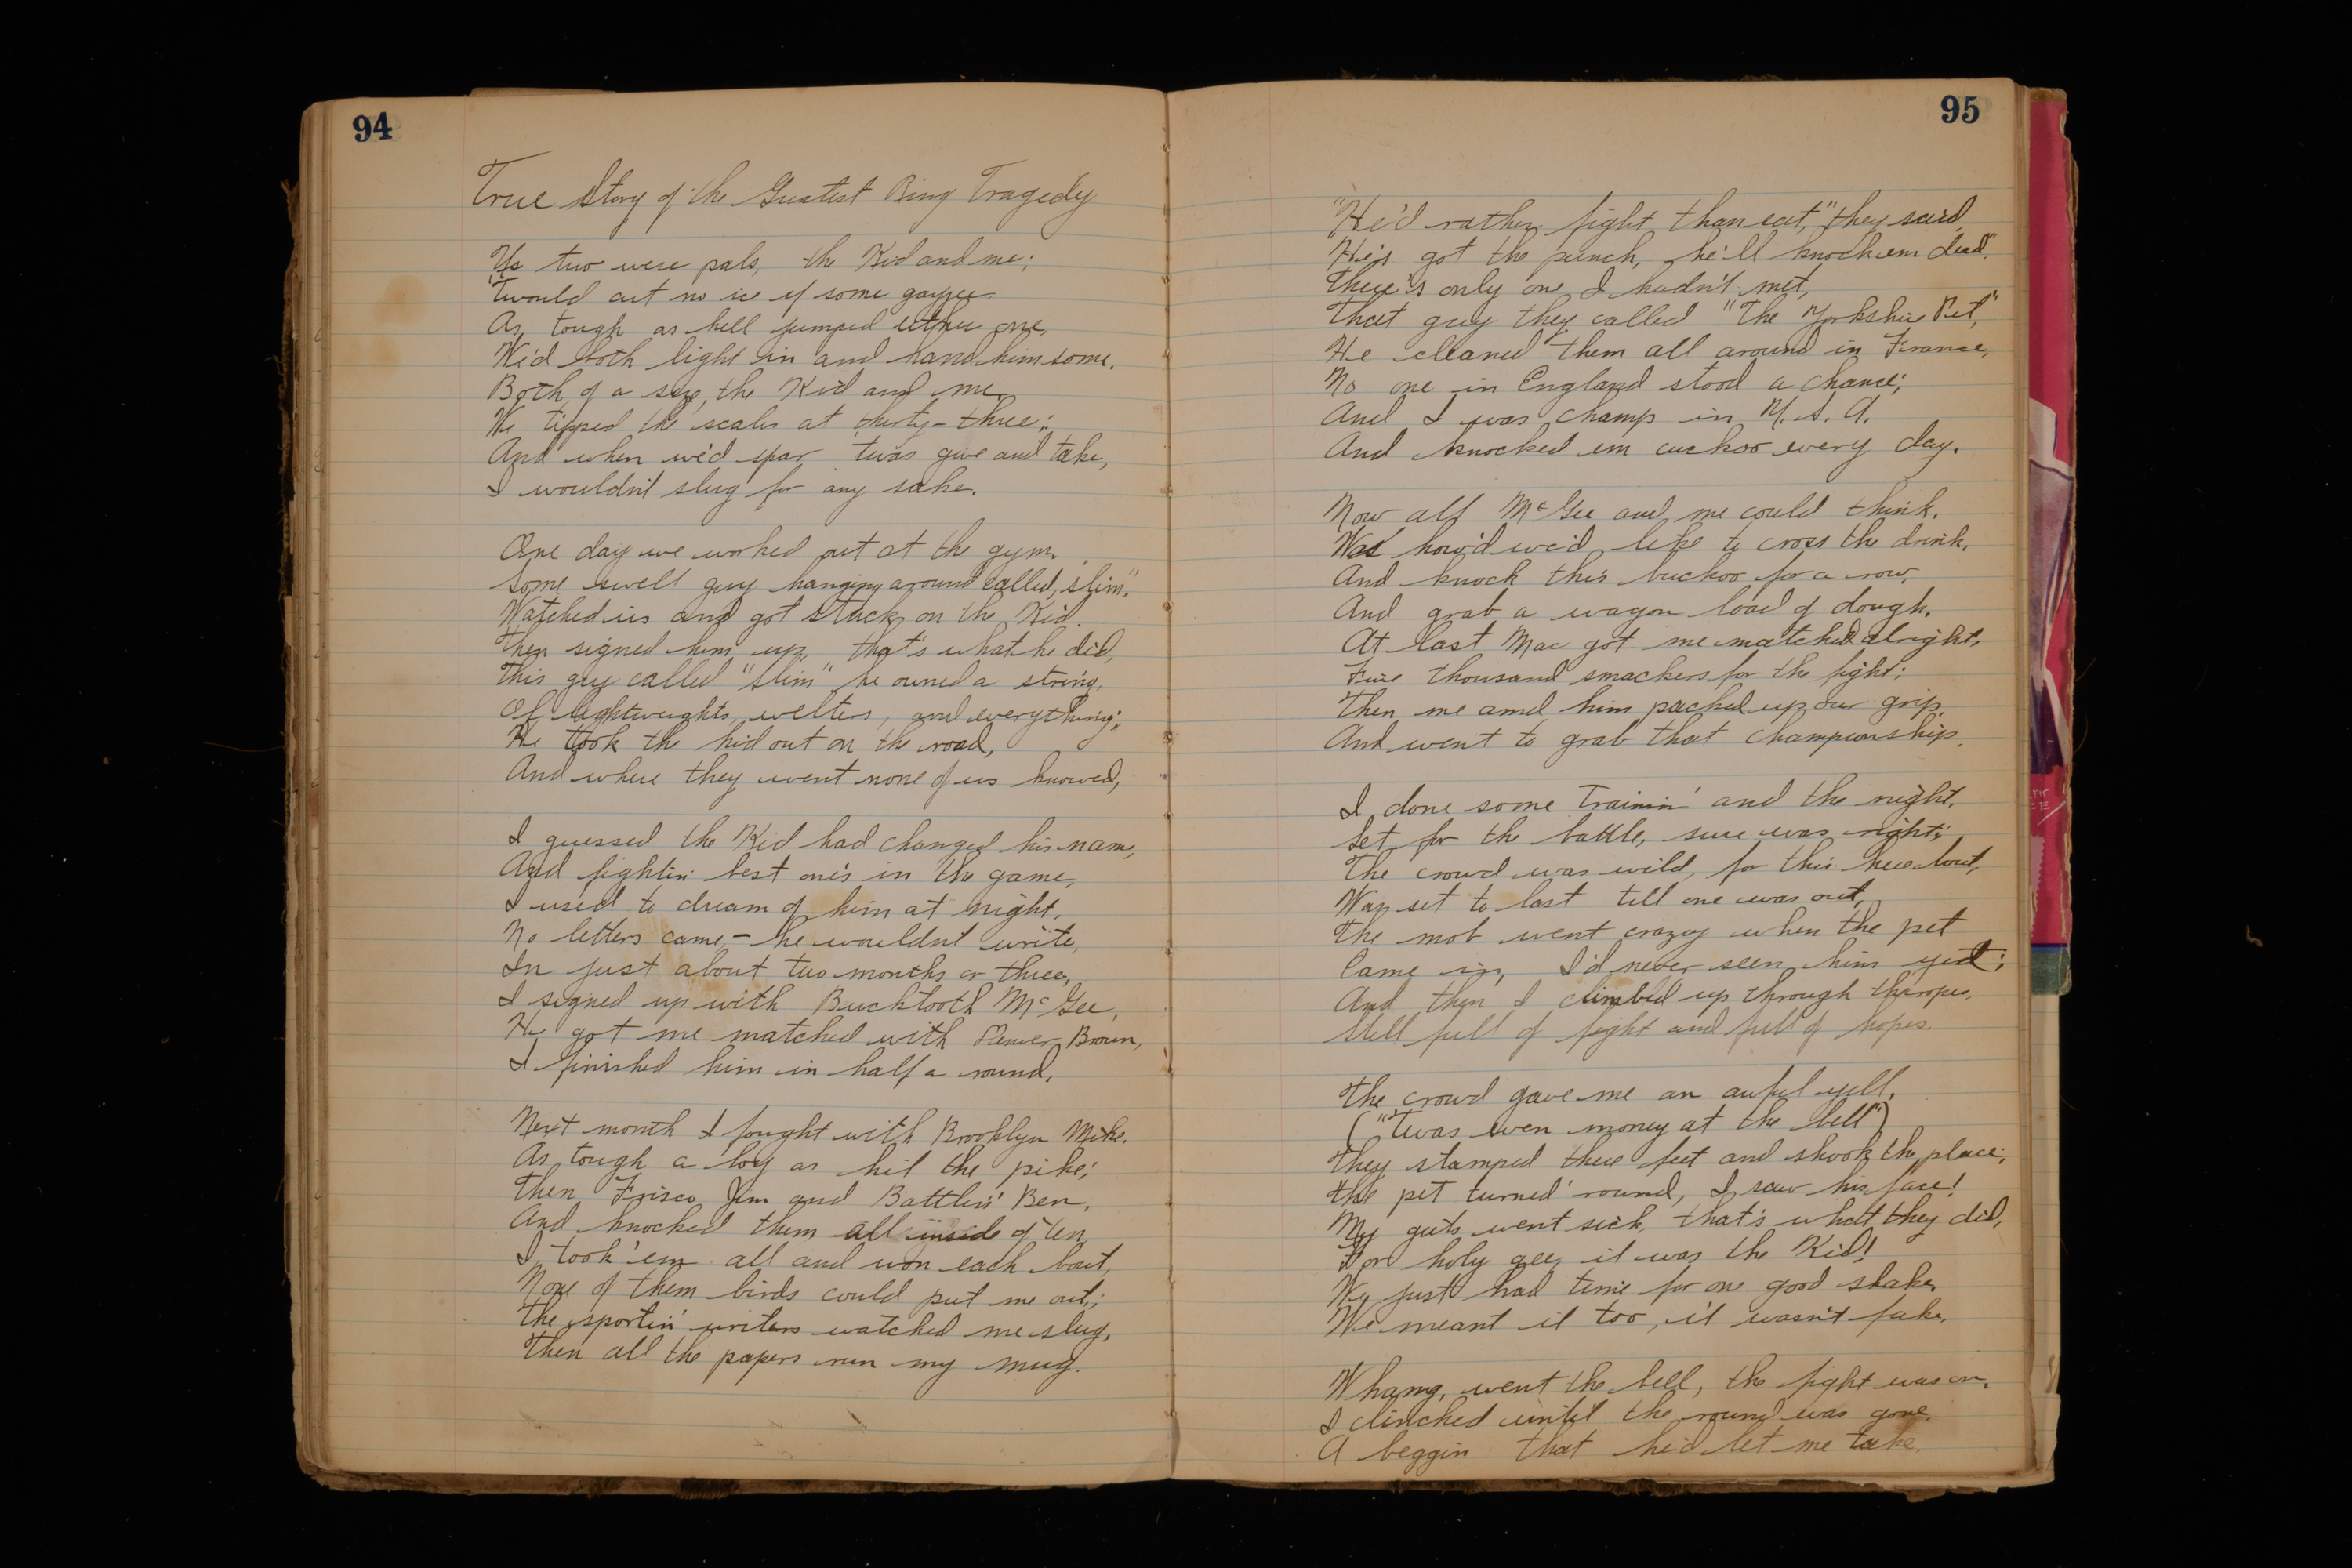 94
True Story of the Greatest Ring Tragedy
Us two were pals, the Kid and me;
'Twould cut no ice if some gayzee
As tough as hell jumped either one,
We'd both light in and hand him some.
Both of a size, the Kid and me.
We tipped the scales at thirty-three;
And when we'd spar 'twas give and take,
I wouldn't slug for any sake.
One day we worked out at the gym.
Some swell guy hanging around called, "Slim".
Watched us and got stuck on the Kid.
Then signed him up, that's what he did,
This guy called "Slim" he owned a string,
Of lightweights, welters, and everything;
He took the kid out on the road,
And where they went none of us knowed,
I guessed the Kid had changed his name,
And fightin' best one's in the game,
I used to dream of him at night,
No letters came, – he wouldn't write,
In just about two months or three,
I signed up with Bucktooth McGee,
He got me matched with Denver Brown,
I finished him in half a round.
Next month I fought with Brooklyn Mike.
As tough a boy as hit the pike;
Then Frisco Jim and Battlin' Ben,
And knocked them all inside of ten
I took 'em all and won each bout,
None of them birds could put me out;
The sportin' writers watched me slug,
Then all the papers run my mug.
95
"He'd rather fight than eat," they said,
"He's got the punch, he'll knock em dead."
There's only one I hadn't met,
That guy they called "The Yorkshire Pet,"
He cleaned them all around in France,
No one in England stood a chance;
And I was champ in U. S. A.
And knocked em cuckoo every day.
Now all McGee and me could think.
Was how'd we'd like to cross the drink,
And knock this buckoo for a row,
And grab a wagon load of dough.
At last Mac got me matched alright,
Five thousand smackers for the fight;
Then me and him packed up our grip,
And went to grab that championship.
I done some Trainin' and the night,
Set for the battle, sure was right;
The crowd was wild, for this here bout,
Was set to last till one was out,
The mob went crazy when the pet
Came in, I'd never seen him yet;
And then I climbed up through the ropes,
Still full of fight and full of hopes.
The crowd gave me an awful yell,
("'Twas even money at the bell")
They stamped there feet and shook the place;
the pet turned 'round, I saw his face!
My guts went sick, that's what they did,
For holy gee, it was the Kid!
We just had time for one good shake,
We meant it too, it wasn't fake.
Whang, went the bell, the fight was on,
I clinched until the round was gone,
A beggin that he'd let me take,